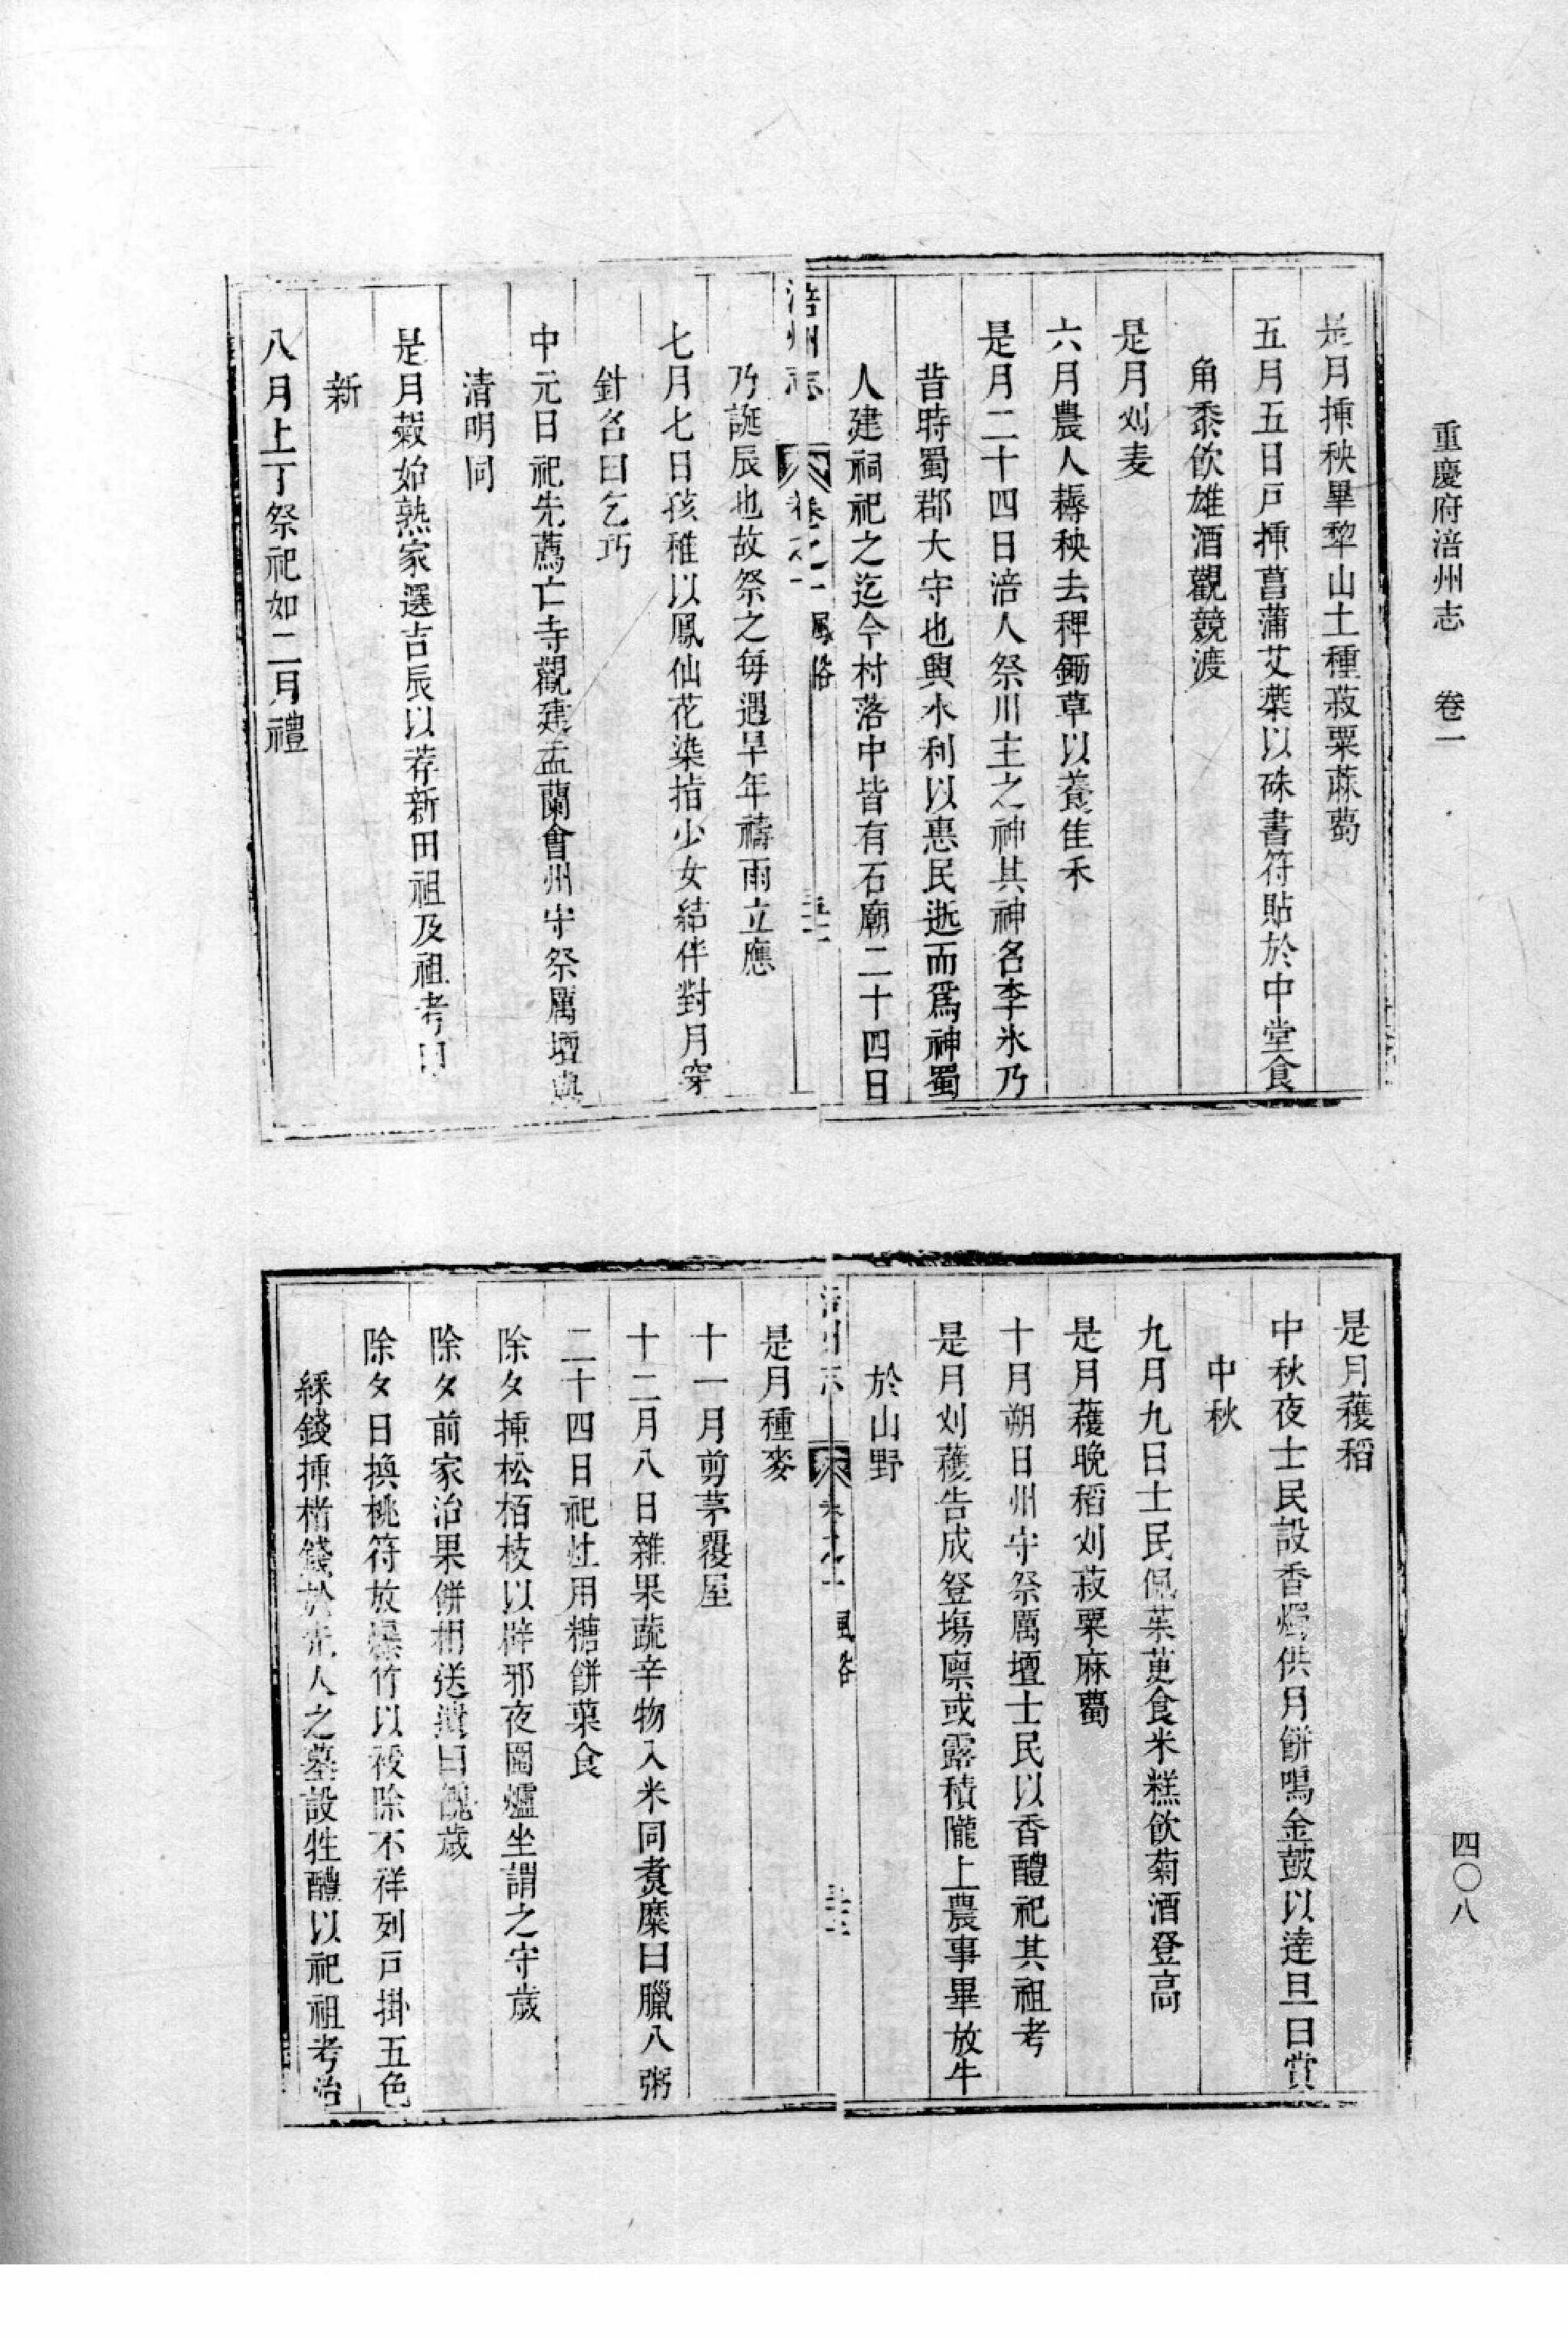 重慶府涪州志　卷一
四〇八
是月揷秧畢犂山土種菽粟蔴蔔
五月五日戸揷菖蒲艾葉以硃書符貼於中堂食
角黍飲雄酒觀競渡
是月刈麦
六月農人耨秧去稗鋤草以養佳禾
是月二十四日涪人祭川主之神其神名李氷乃
昔時蜀郡大守也興水利以惠民逝而爲神蜀
人建祠祀之迄今村落中皆有石廟二十四日
涪州志　卷之一　風俗
乃誕辰也故祭之毎遇旱年禱雨立應
七月七日孩稚以鳳仙花染指少女結伴對月穿
針名曰乞巧
中元日祀先薦亡寺觀建盂蘭會州守祭厲壇與
清明同
是月穀始熟家選吉辰以荐新田祖及祖考曰
新
八月上丁祭祀如二月禮
是月穫稻
中秋夜士民設香燭供月餅鳴金鼓以達旦曰賞
中秋
九月九日士民佩茱萸食米糕飲菊酒登高
是月穫晚稻刈菽粟麻蔔
十月朔日州守祭厲壇士民以香醴祀其祖考
是月刈穫告成登塲廪或露積隴上農事畢放牛
於山野
涪州志　卷之一　風俗
是月種麥
十一月剪茅覆屋
十二月八日雜果蔬辛物入米同煮糜曰臘八粥
二十四日祀灶用糖餅菓食
除夕揷松栢枝以辟邪夜圍爐坐謂之守歳
除夕前家治果餅相送遺曰餽歳
除夕日換桃符放爆竹以祓除不祥列戸掛五色
綵錢揷楮錢於先人之墓設牲醴以祀祖考治